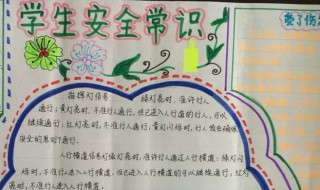 学生安全常识
指挥灯信号 绿灯亮时,准许行人
通行;黄灯亮时,不准行人通行,但已进入行道的行人,可以
继续通行;红灯亮时,不准行人通行;黄灯闪烁时,行人须在确保
安全的原则下通行。
人行横道信号灯绿灯亮时,准许行人通过人行横道;绿灯闪
烁时,不准行人进入人行横道,但已进入人行横道的可以继续通行;红灯
亮时,不准行人进入人行横道